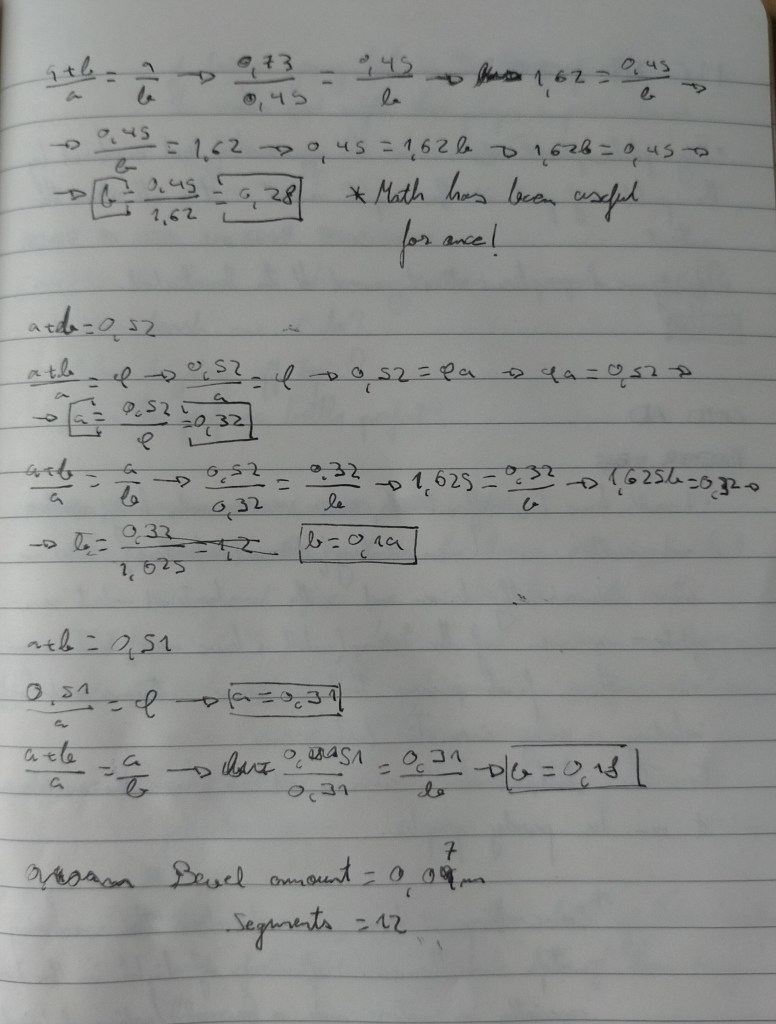 a+b/a = a/b → 0,73/0,45 = 0,45/b → 1,62 = 0,45/b →
→ 0,45/b = 1,62 → 0,45 = 1,62b → 1,62b = 0,45 →
→ b = 0,45/1,62 = 0,28 * Math has been useful
for once!
a+b = 0,52
a+b/a = φ → 0,52/a = φ → 0,52 = φa → φa = 0,52 →
→ a = 0,52/φ = 0,32
a+b/a = a/b → 0,52/0,32 = 0,32/b → 1,625 = 0,32/b → 1,625b = 0,32 →
→ b = 0,32/1,625 b = 0,19
a+b = 0,51
0,51/a = φ → a = 0,31
a+b/a = a/b → 0,51/0,31 = 0,31/b → b = 0,18
Bevel amount = 0,07m
Segments = 12